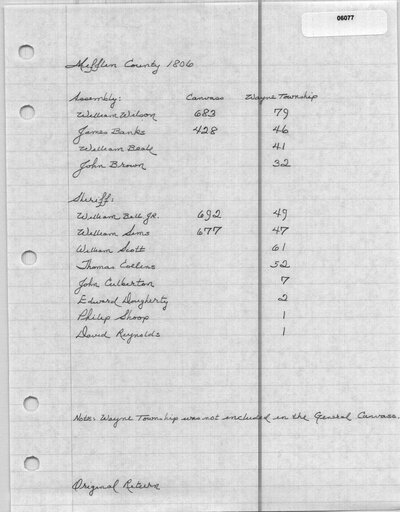 06077
Mifflin County 1806
Assembly: Canvass Wayne Township
William Wilson 683 79
James Banks 428 46
William Beale 41
John Brown 32
Sheriff:
William Bell Jr. 692 49
William Sims 677 47
William Scott 61
Thomas Collins 52
John Culbertson 7
Edward Dougherty 2
Philip Shoop 1
David Reynolds 1
Note: Wayne Township was not included in the General Canvass.
Original Return